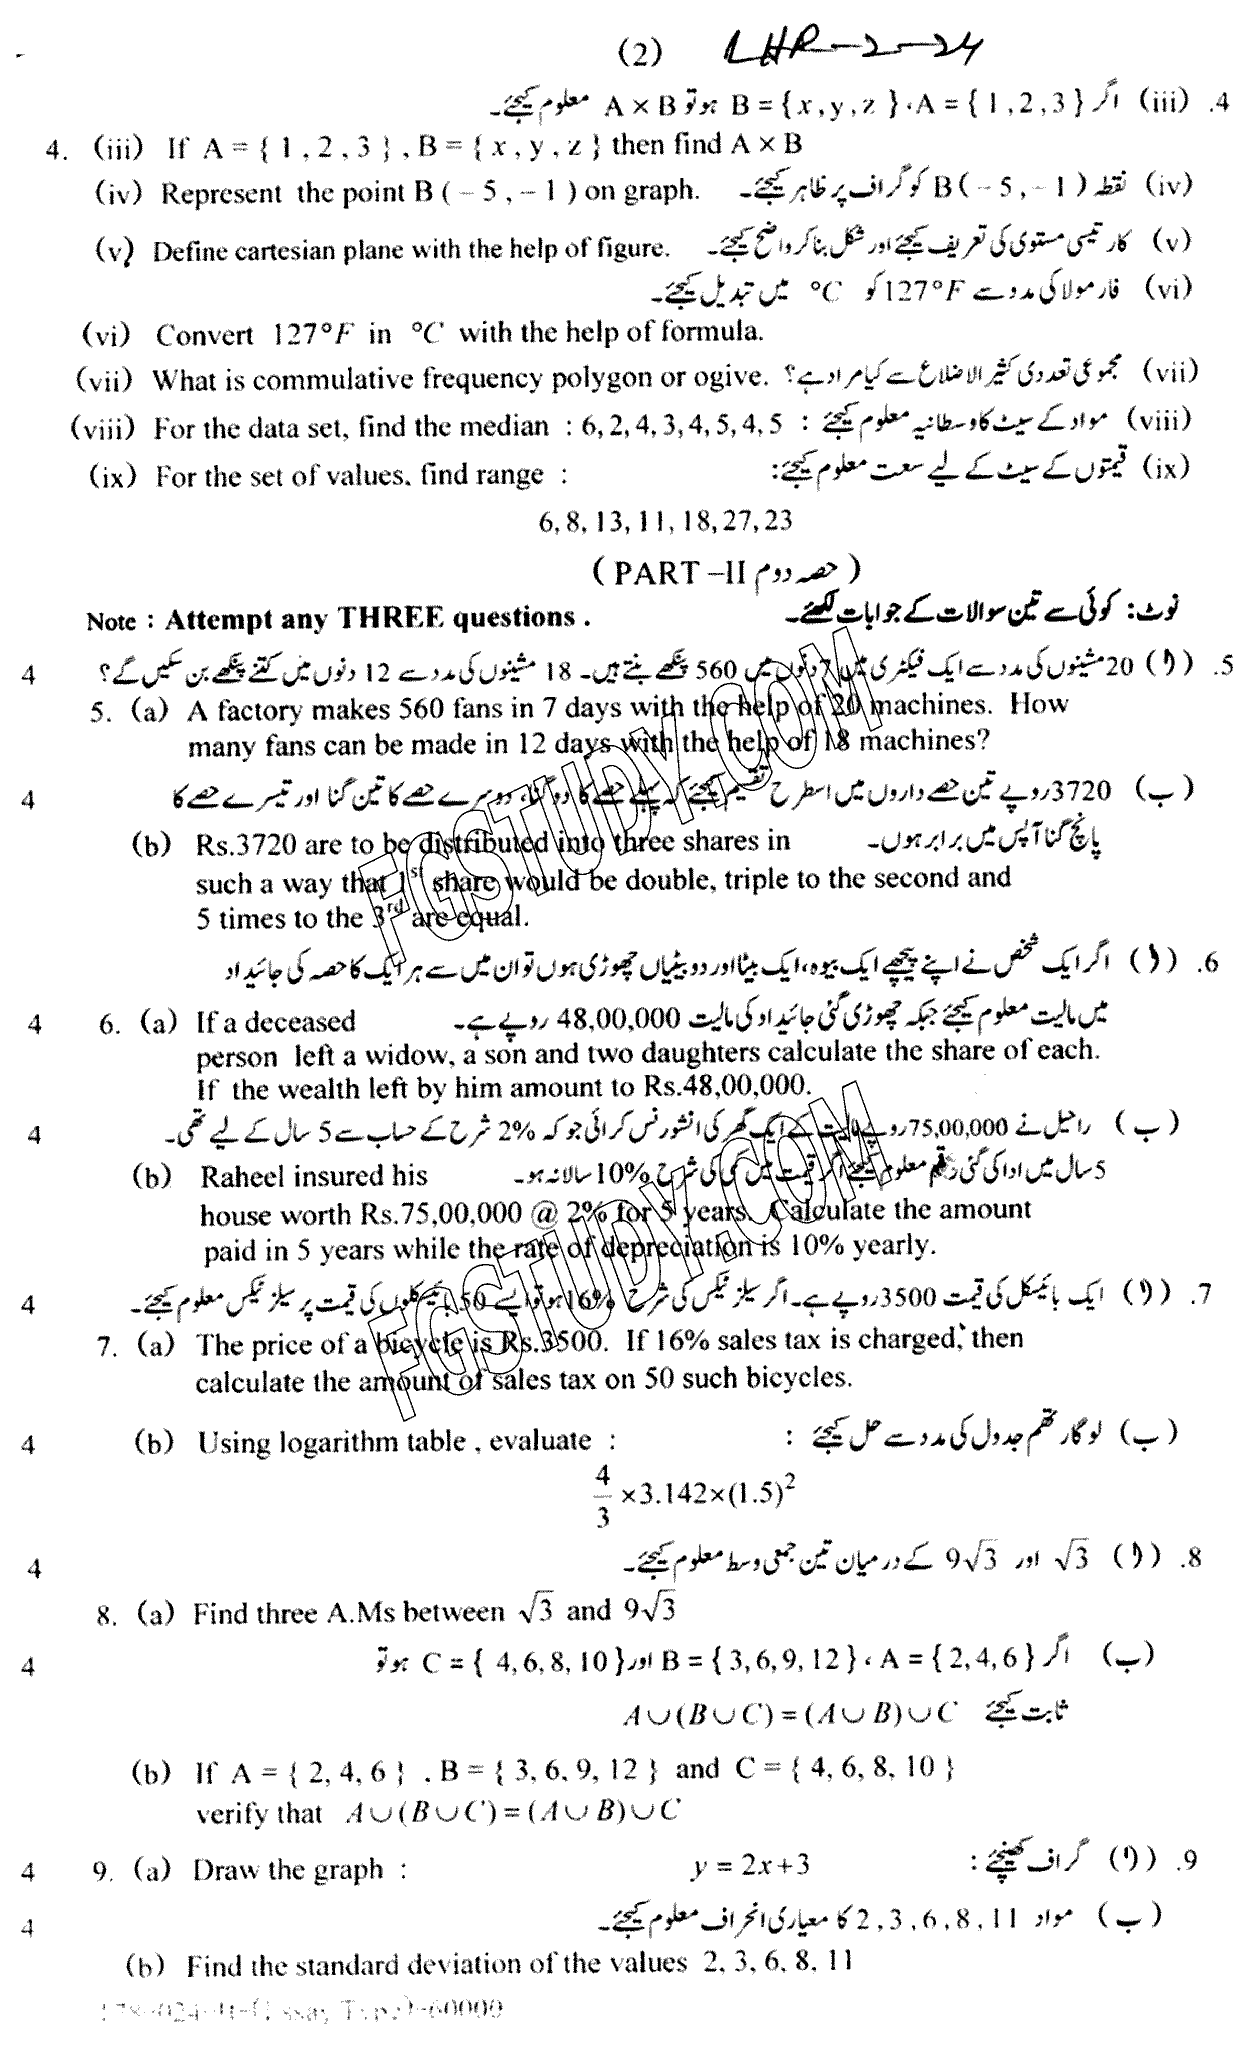 (2) LHR-2-24
4. (iii) اگر A = { 1 , 2 , 3 } ، B = { x , y , z } ہو تو A × B معلوم کیجئے۔
4. (iii) If A = { 1 , 2 , 3 } , B = { x , y , z } then find A × B
(iv) Represent the point B ( – 5 , – 1 ) on graph. (iv) نقطہ B ( – 5 , – 1 ) کو گراف پر ظاہر کیجئے۔
(v) Define cartesian plane with the help of figure. (v) کارتیسی مستوی کی تعریف کیجئے اور شکل بنا کر واضح کیجئے۔
(vi) فارمولا کی مدد سے 127°F کو °C میں تبدیل کیجئے۔
(vi) Convert 127°F in °C with the help of formula.
(vii) What is commulative frequency polygon or ogive. (vii) مجموعی تعددی کثیر الاضلاع سے کیا مراد ہے؟
(viii) For the data set, find the median : 6, 2, 4, 3, 4, 5, 4, 5 : (viii) مواد کے سیٹ کا وسطانیہ معلوم کیجئے
(ix) For the set of values, find range : (ix) قیمتوں کے سیٹ کے لیے سعت معلوم کیجئے:
6, 8, 13, 11, 18, 27, 23
( PART –II حصہ دوم )
Note : Attempt any THREE questions . نوٹ: کوئی سے تین سوالات کے جوابات لکھئے۔
4 5. (ا) 20 مشینوں کی مدد سے ایک فیکٹری میں 7 دنوں میں 560 پنکھے بنتے ہیں۔ 18 مشینوں کی مدد سے 12 دنوں میں کتنے پنکھے بن سکیں گے؟
5. (a) A factory makes 560 fans in 7 days with the help of 20 machines. How
many fans can be made in 12 days with the help of 18 machines?
4 (ب) 3720 روپے تین حصے داروں میں اسطرح تقسیم کیجئے کہ پہلے حصے کا دو گنا، دوسرے حصے کا تین گنا اور تیسرے حصے کا
(b) Rs.3720 are to be distributed into three shares in پانچ گنا آپس میں برابر ہوں۔
such a way that 1st share would be double, triple to the second and
5 times to the 3rd are equal.
6. (ا) اگر ایک شخص نے اپنے پیچھے ایک بیوہ، ایک بیٹا اور دو بیٹیاں چھوڑی ہوں تو ان میں سے ہر ایک کا حصہ کی جائیداد
4 6. (a) If a deceased میں مالیت معلوم کیجئے جبکہ چھوڑی گئی جائیداد کی مالیت 48,00,000 روپے ہے۔
person left a widow, a son and two daughters calculate the share of each.
If the wealth left by him amount to Rs.48,00,000.
4 (ب) راحیل نے 75,00,000 روپے مالیت کے ایک گھر کی انشورنس کرائی جو کہ 2% شرح کے حساب سے 5 سال کے لیے تھی۔
(b) Raheel insured his 5 سال میں ادا کی گئی رقم معلوم کیجئے اگر قیمت میں کمی کی شرح 10% سالانہ ہو۔
house worth Rs.75,00,000 @ 2% for 5 years. Calculate the amount
paid in 5 years while the rate of depreciation is 10% yearly.
4 7. (ا) ایک بائیسکل کی قیمت 3500 روپے ہے۔ اگر سیلز ٹیکس کی شرح 16% ہو تو ایسے 50 بائیسکلوں کی قیمت پر سیلز ٹیکس معلوم کیجئے۔
7. (a) The price of a bicycle is Rs.3500. If 16% sales tax is charged, then
calculate the amount of sales tax on 50 such bicycles.
4 (b) Using logarithm table , evaluate : (ب) لوگارتھم جدول کی مدد سے حل کیجئے :
4/3 ×3.142×(1.5)²
4 8. (ا) √3 اور 9√3 کے درمیان تین جمعی وسط معلوم کیجئے۔
8. (a) Find three A.Ms between √3 and 9√3
4 (ب) اگر A = { 2, 4, 6 } ، B = { 3, 6, 9, 12 } اور C = { 4, 6, 8, 10 } ہو تو
ثابت کیجئے A∪(B∪C) = (A∪B)∪C
(b) If A = { 2, 4, 6 } , B = { 3, 6, 9, 12 } and C = { 4, 6, 8, 10 }
verify that A∪(B∪C) = (A∪B)∪C
4 9. (a) Draw the graph : y = 2x+3 9. (ا) گراف کھینچئے :
4 (ب) مواد 2 , 3 , 6 , 8 , 11 کا معیاری انحراف معلوم کیجئے۔
(b) Find the standard deviation of the values 2, 3, 6, 8, 11
FGSTUDY.COM
FGSTUDY.COM